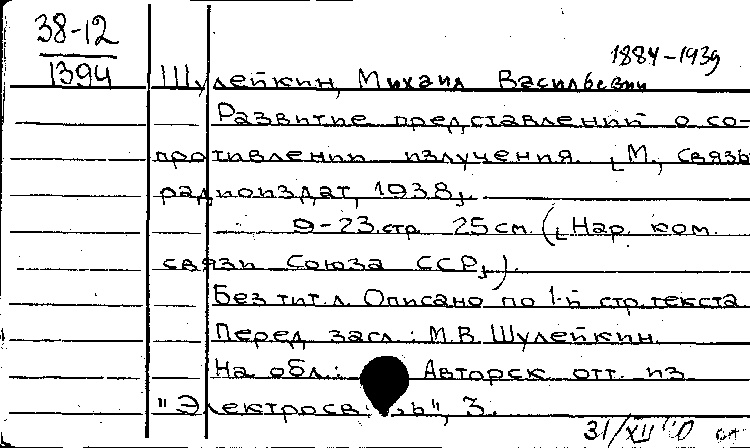 38-12
1394
1884-1939
Шулейкин, Михаил Васильевич
Развитие представлений о со-
противлении излучения. [М., Связь
радиоиздат, 1938].
9-23 стр. 25 см. ([Нар. ком.
связи Союза ССР]).
Без тит. л. Описано по 1-й стр. текста
Перед загл.: М.В. Шулейкин.
На обл.: Авторск. отт. из
"Электросвязь", 3.
31/XII